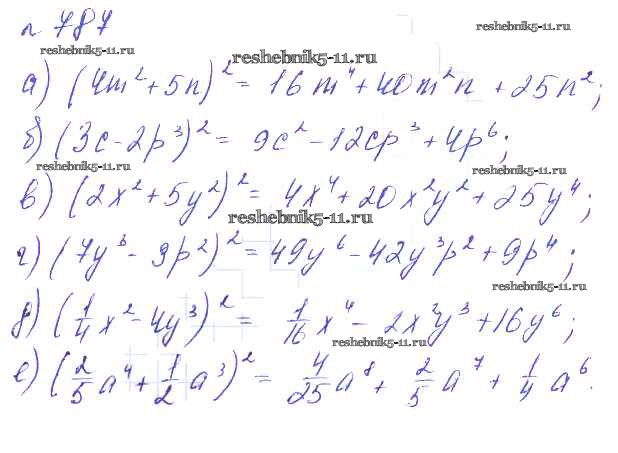 n 787
reshebnik5-11.ru
reshebnik5-11.ru
reshebnik5-11.ru
а) (4m² + 5n)² = 16m⁴ + 40m²n + 25n²;
б) (3c - 2p³)² = 9c² - 12cp³ + 4p⁶;
reshebnik5-11.ru
reshebnik5-11.ru
в) (2x² + 5y²)² = 4x⁴ + 20x²y² + 25y⁴;
reshebnik5-11.ru
г) (7y³ - 3p²)² = 49y⁶ - 42y³p² + 9p⁴;
reshebnik5-11.ru
д) (1/4 x² - 4y³)² = 1/16 x⁴ - 2x²y³ + 16y⁶;
reshebnik5-11.ru
е) (2/5 a⁴ + 1/2 a³)² = 4/25 a⁸ + 2/5 a⁷ + 1/4 a⁶.